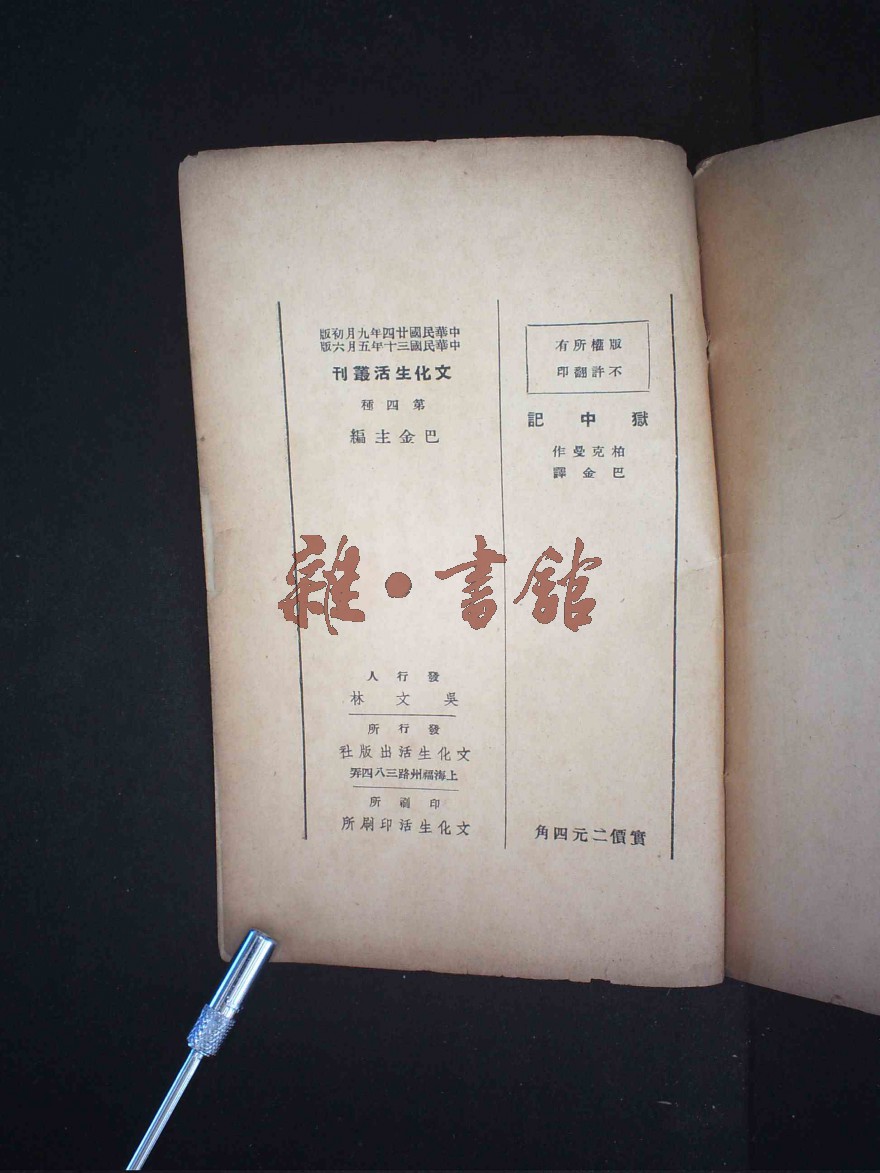 版權所有
不許翻印
獄中記
柏克曼作
巴金譯
實價二元四角
中華民國廿四年九月初版
中華民國三十年五月六版
文化生活叢刊
第四種
巴金主編
發行人
吳文林
發行所
文化生活出版社
上海福州路三八四弄
印刷所
文化生活印刷所
雜·書館